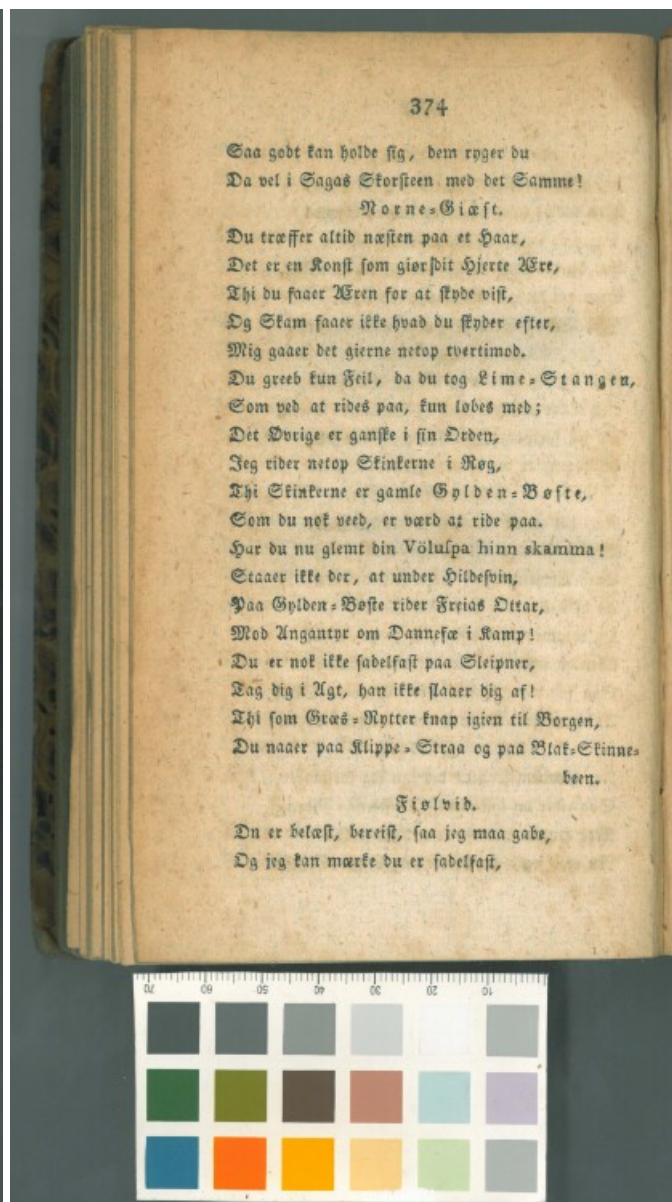 374
Saa godt kan holde sig, dem ryger du
Da vel i Sagas Skorsteen med det Samme!
Norne-Giæst.
Du træffer altid næsten paa et Haar,
Det er en Konst som giør dit Hjerte Ære,
Thi du faaer Æren for at skyde vist,
Og Skam faaer ikke hvad du skyder efter,
Mig gaaer det gierne netop tvertimod.
Du greeb kun Feil, da du tog Lime-Stangen,
Som ved at rides paa, kun løbes med;
Det Øvrige er ganske i sin Orden,
Jeg rider netop Skinkerne i Røg,
Thi Skinkerne er gamle Gylden-Bøste,
Som du nok veed, er værd at ride paa.
Har du nu glemt din Völuspa hinn skamma!
Staaer ikke der, at under Hildesvin,
Paa Gylden-Bøste rider Freias Ottar,
Mod Angantyr om Dannefæ i Kamp!
Du er nok ikke sadelfast paa Sleipner,
Tag dig i Agt, han ikke slaaer dig af!
Thi som Græs-Rytter knap igien til Borgen,
Du naaer paa Klippe-Straa og paa Blak-Skinne-
been.
Fiølvid.
Dn er belæst, bereist, saa jeg maa gabe,
Og jeg kan mærke du er sadelfast,
70 60 50 40 30 20 10